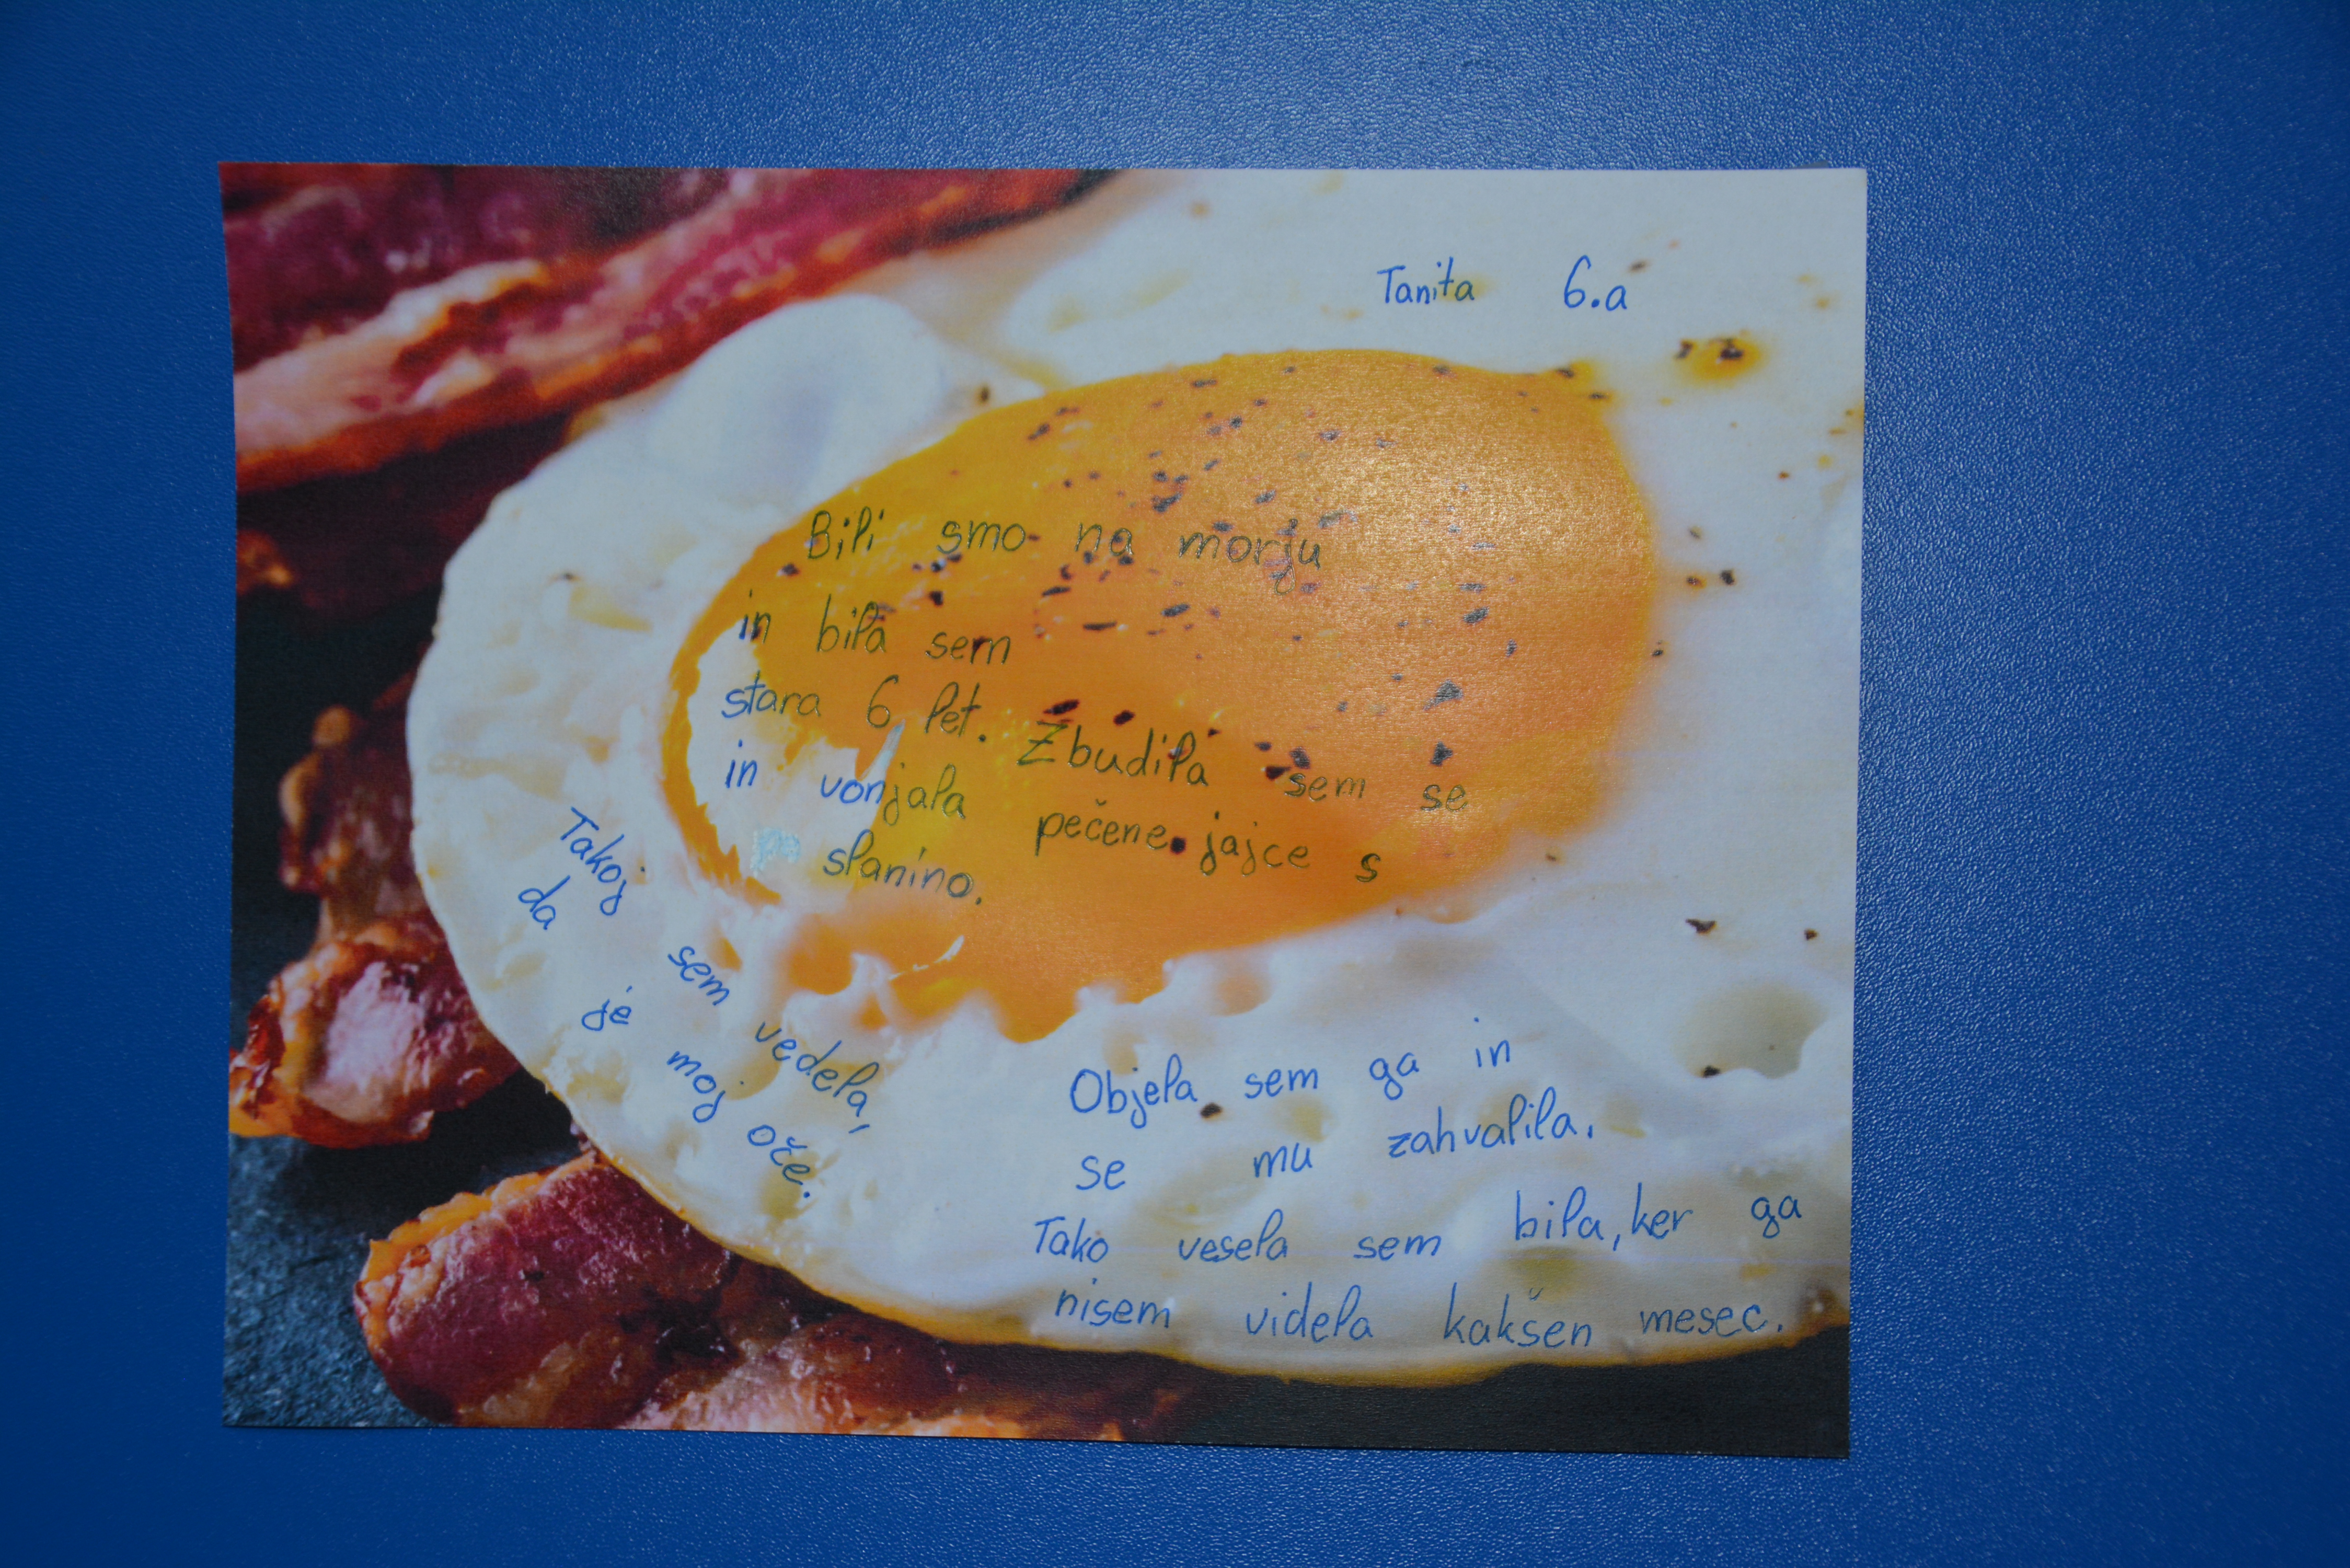 Tanita 6.a
Bili smo na morju
in bila sem
stara 6 let. Zbudila sem se
in vonjala pečene jajce s
slanino.
Takoj sem vedela,
da je moj oče.
Objela sem ga in
se mu zahvalila.
Tako vesela sem bila, ker ga
nisem videla kakšen mesec.